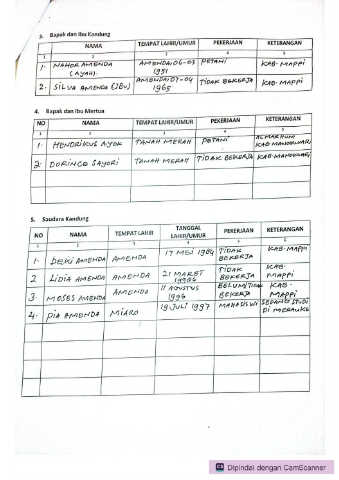 3. Bapak dan Ibu Kandung
NAMA TEMPAT LAHIR/UMUR PEKERJAAN KETERANGAN
1 2 3 4 5
1. NAHOR AMENDA (AYAH) AMENDA, 06-03 1951 PETANI KAB. MAPPI
2. SILVA AMENDA (IBU) AMENDA, 07-04 1965 TIDAK BEKERJA KAB. MAPPI
4. Bapak dan Ibu Mertua
NO NAMA TEMPAT LAHIR/UMUR PEKERJAAN KETERANGAN
1 2 3 4 5
1. HENDRIKUS AYOK TANAH MERAH PETANI ALMARHUM KAB MANOKWARI
2. DORINCE SAYORI TANAH MERAH TIDAK BEKERJA KAB MANOKWARI
5. Saudara Kandung
NO NAMA TEMPAT LAHIR TANGGAL LAHIR/UMUR PEKERJAAN KETERANGAN
1 2 3 4 5
1. DEWI AMENDA AMENDA 17 MEI 1984 TIDAK BEKERJA KAB. MAPPI
2 LIDIA AMENDA AMENDA 21 MARET TIDAK BEKERJA KAB. MAPPI
3. MOSES AMENDA AMENDA 11 AGUSTUS 1996 BELUM/TIDAK BEKERJA KAB. MAPPI
4. PIA AMENDA MIARO 19 JULI 1997 MAHASISWI SEDANG STUDI DI MERAUKE
Dipindai dengan CamScanner